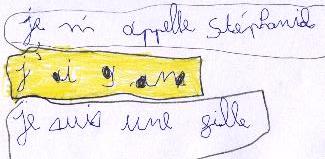 je m appelle Stéphanie
j' ai 9 ans
je suis une fille